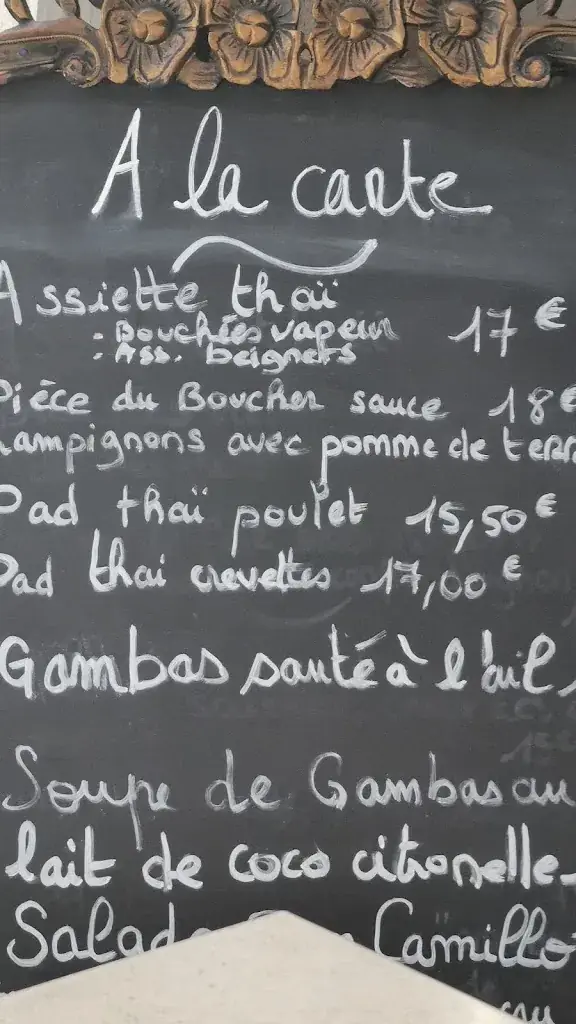 A la carte
Assiette thaï
: Bouchées vapeur 17 €
: Ass. beignets
Pièce du Boucher sauce 18 €
hampignons avec pomme de terr
Pad thaï poulet 15,50 €
Pad thai crevettes 17,00 €
Gambas sauté à l'ail
Soupe de Gambas au
lait de coco citronelle
Salad Camillo